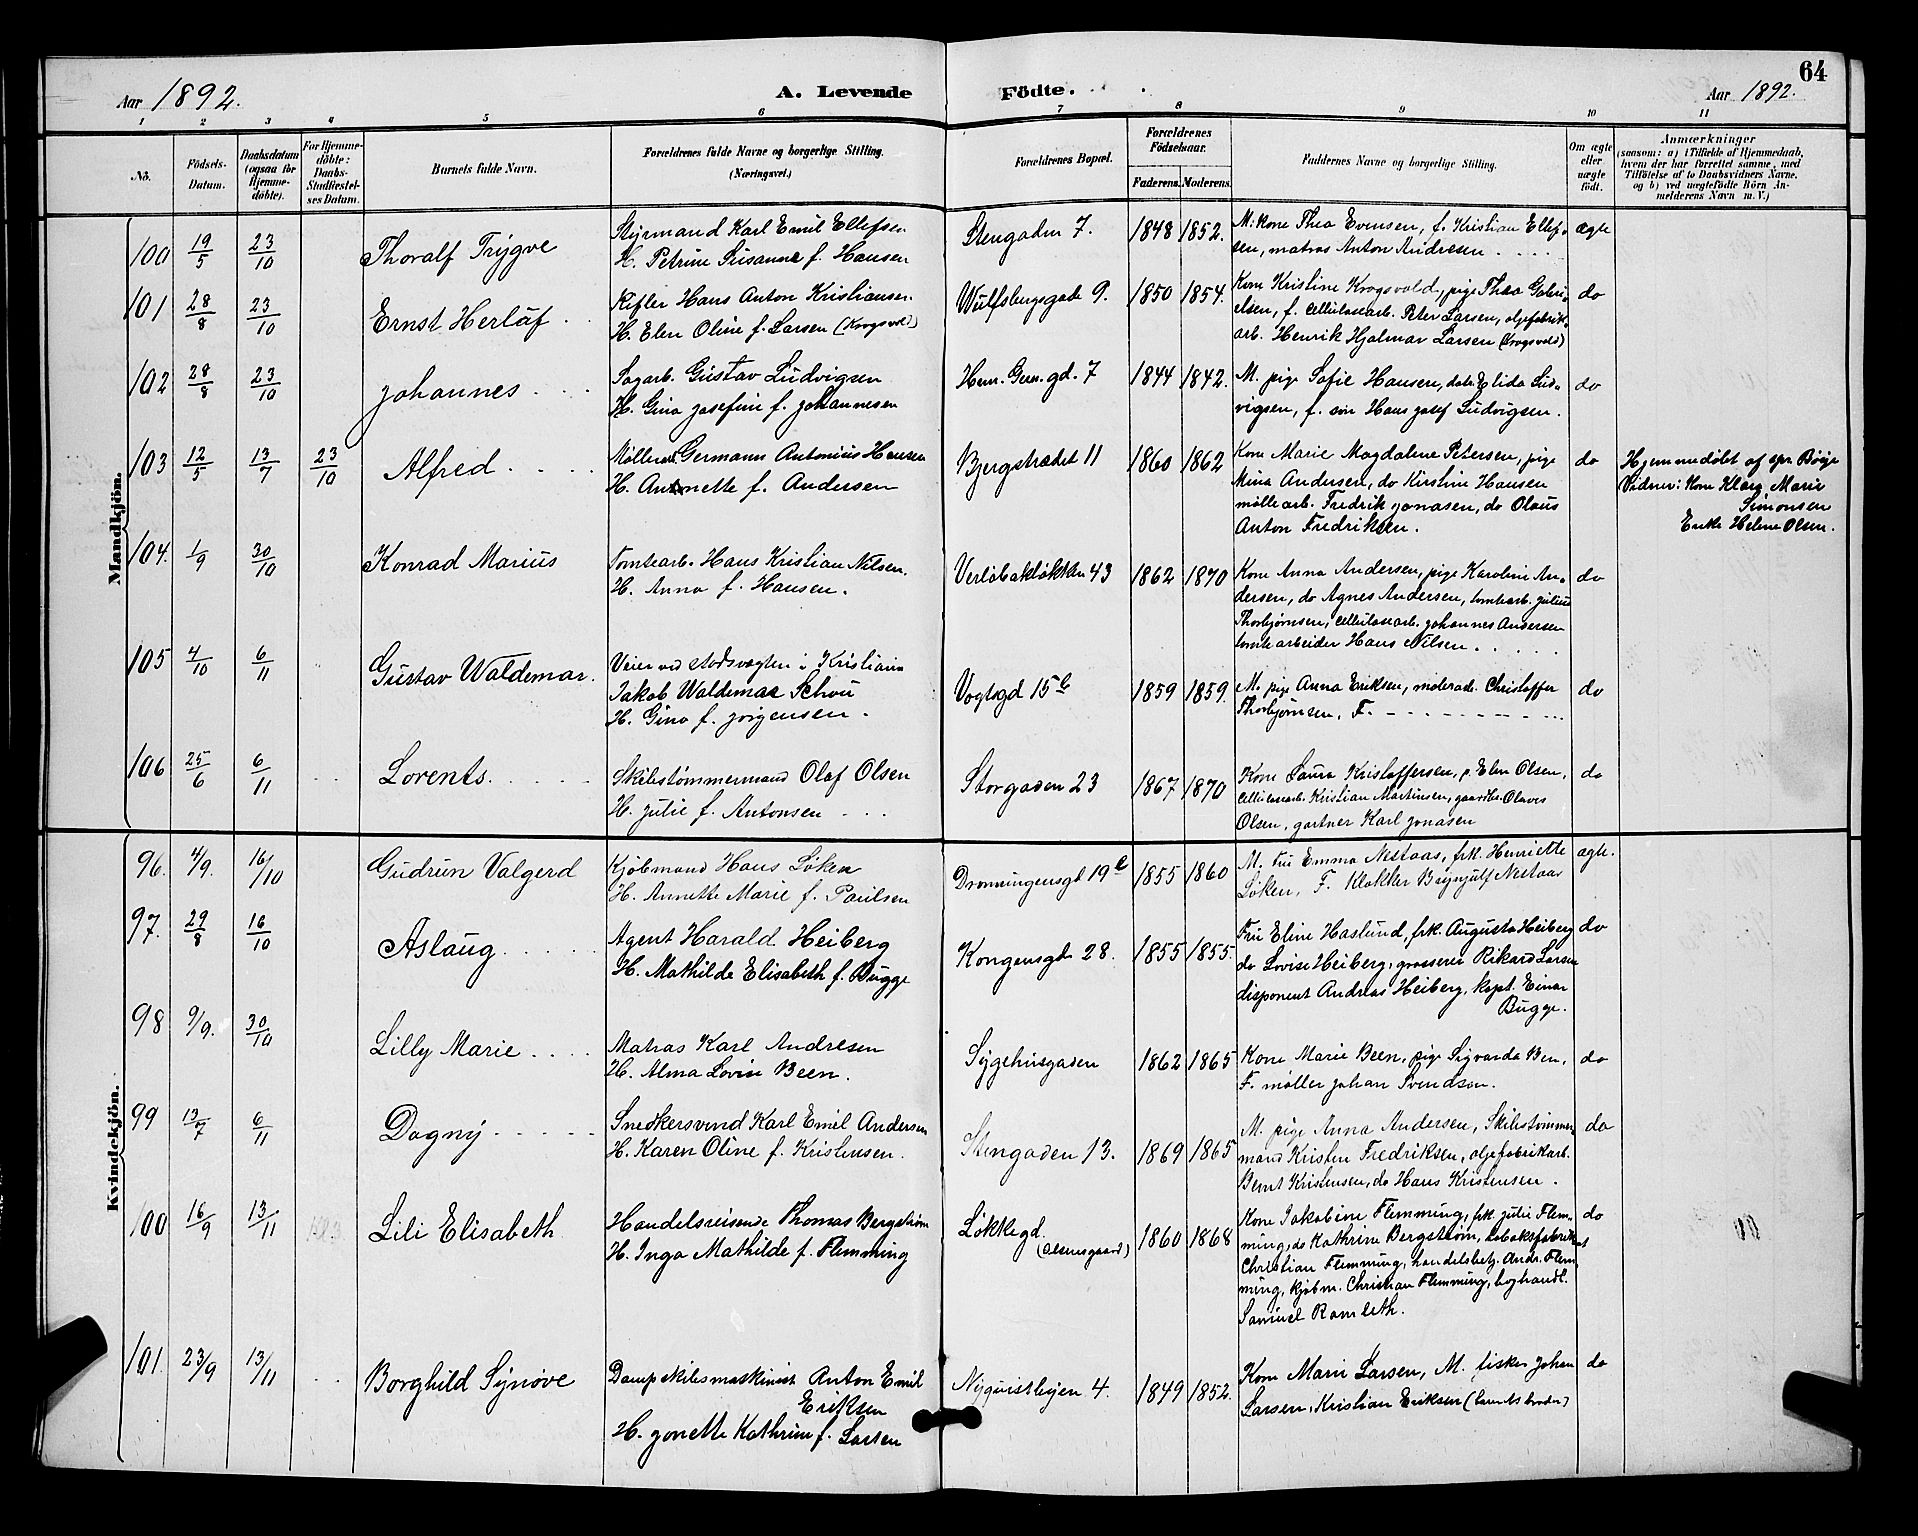 64
Aar 1892.
A. Levende Födte.
Aar 1892.
1 2 3 4 5 6 7 8 9 10 11
No.
Födsels-Datum.
Daabsdatum (ogsaa for Hjemme-döbte).
For Hjemme-döbte: Daabs-Stadfæstel-ses Datum.
Barnets fulde Navn.
Forældrenes fulde Navne og borgerlige Stilling. (Næringsvei.)
Forældrenes Bopæl.
Forældrenes Födselsaar.
Faderens. Moderens.
Faddernes Navne og borgerlige Stilling.
Om ægte eller uægte födt.
Anmærkninger
(saasom: a) i Tilfælde af Hjemmedaab, hvem der har forrettet samme, med Tilföielse af to Daabsvidners Navne, og b) ved uægtefödte Börn An-melderens Navn m. V.)
Mandkjön.
100 19/5 23/10 Thoralf Trygve
Styrmand Karl Emil Ellefsen
H. Petrine Susanne f. Hansen
Stengaden 7. 1848 1852.
M. kone Thea Evensen, f. Kristian Ellef-
sen, matros Anton Andresen . . . .
ægte
101 28/8 23/10 Ernst Herlaf
Rifler Hans Anton Kristiansen
H. Elen Oline f. Larsen (Krogsvold)
Wulfsbergsgade 9. 1850 1854.
Kone Kristine Krogsvold, pige Thea Gabri-
elsen, f. cellulosearb. Peter Larsen, oljefabrik-
arb. Henrik Hjalmar Larsen (Krogsvold)
do
102 28/8 23/10 Johannes
Sagarb. Gustav Ludvigsen
H. Gina Josefine f. Johannesen
Hem. Gem. gd. 7 1844 1842.
M. pige Sofie Hansen, datr Elida Lud-
vigsen, f. sön Hans Josef Ludvigsen.
do
103 12/5 13/7 23/10 Alfred
Möllerarb. Germann Antonius Hansen
H. Antonette f. Andersen
Bjergstrædet 11 1860 1862
Kone Marie Magdalene Petersen, pige
Mina Andersen, do Kirstine Hansen
möllearb. Fredrik Jonasen, do Olaus
Anton Fredriksen.
do
Hjemmedöbt af spr. Böije
Vidner: Kone Klara Marie
Simonsen
Enke Helene Olsen.
104. 1/9 30/10 Konrad Marius
Tomtearb. Hans Kristian Nilsen.
H. Anna f. Hansen.
Verlöbaklökken 43 1862 1870
Kone Anna Andersen, pige Karoline An-
dersen, do Agnes Andersen, tomtearb. Julius
Thorbjørnsen, cellulosearb. Johannes Andersen
tomtearbeider Hans Nilsen . . . . .
do
105 4/10 6/11 Gustav Waldemar.
Veier ved Stadsvægten i Kristiania
Jakob Waldemar Schou
H. Gina f. Jörgensen.
Vogtsgd 15 b 1859 1859.
M. pige Anna Eriksen, Christoffer
Thorbjørnsen, F.
do
106 25/6 6/11 Lorents.
Skibstømmermand Olaf Olsen
H. Julie f. Antonsen
Storgaden 23 1867 1870
Kone Laura Kristoffersen, p. Elen Olsen,
cellulosearb. Kristian Martinsen, gaardbr. Olaves
Olsen, gartner Karl Jonasen
do
Kvindekjön.
96. 4/9. 16/10 Gudrun Valgerd
Kjöbmand Hans Løken
H. Annette Marie f. Paulsen
Dronningensgd 19 b 1855 1860
M. Fru Emma Nestaas, frk. Henriette
Løken, F. Klokker Brynjulf Nestaas
ægte.
97. 29/8 16/10 Aslaug
Agent Harald Heiberg
H. Mathilde Elisabeth f. Bugge
Kongensgd 28. 1855 1855.
Fru Eline Haslund, frk. Augusta Heiberg
do Lovise Heiberg, grosserer Rikard Larsen
disponent Andreas Heiberg, kapt. Einar
Bugge.
do
98 9/9. 30/10 Lilly Marie
Matros Karl Andresen
H. Alma Lovise Been.
Sygehusgaden 1862 1865
Kone Marie Been, pige Sigvarda Ben,
F. møller Johan Svendsen.
do
99 13/7 6/11 Dagny
Snedkersvend Karl Emil Andersen
H. Karen Oline f. Kristensen.
Stengaden 13. 1869 1865
M. pige Anna Andersen, Skibstömmer-
mand Kristen Fredriksen, oljefabrikarb.
Bernt Kristensen, do Hans Kristensen.
do
100 16/9 13/11 Lili Elisabeth
Handelsreisende Thomas Bergström
H. Inga Mathilde f. Flemming
Løkkegd. (Olsensgaard) 1860 1868
Kone Jakobine Flemming, frk. Julie Flem-
ming, do Kathrine Bergström, tobaksfabrikant
Christian Flemming, handelsbetj. Andr. Flem-
ming, kjöbm. Christian Flemming, boghandl.
Samuel Ramleth.
do
101. 23/9 13/11 Borghild Synöve
Dampskibsmaskinist Anton Emil
Eriksen
H. Jonette Kathrine f. Larsen
Nyquistbyen 4. 1849 1852.
Kone Marie Larsen, M. fisker Johan
Larsen, Kristian Eriksen (barnets broder)
do